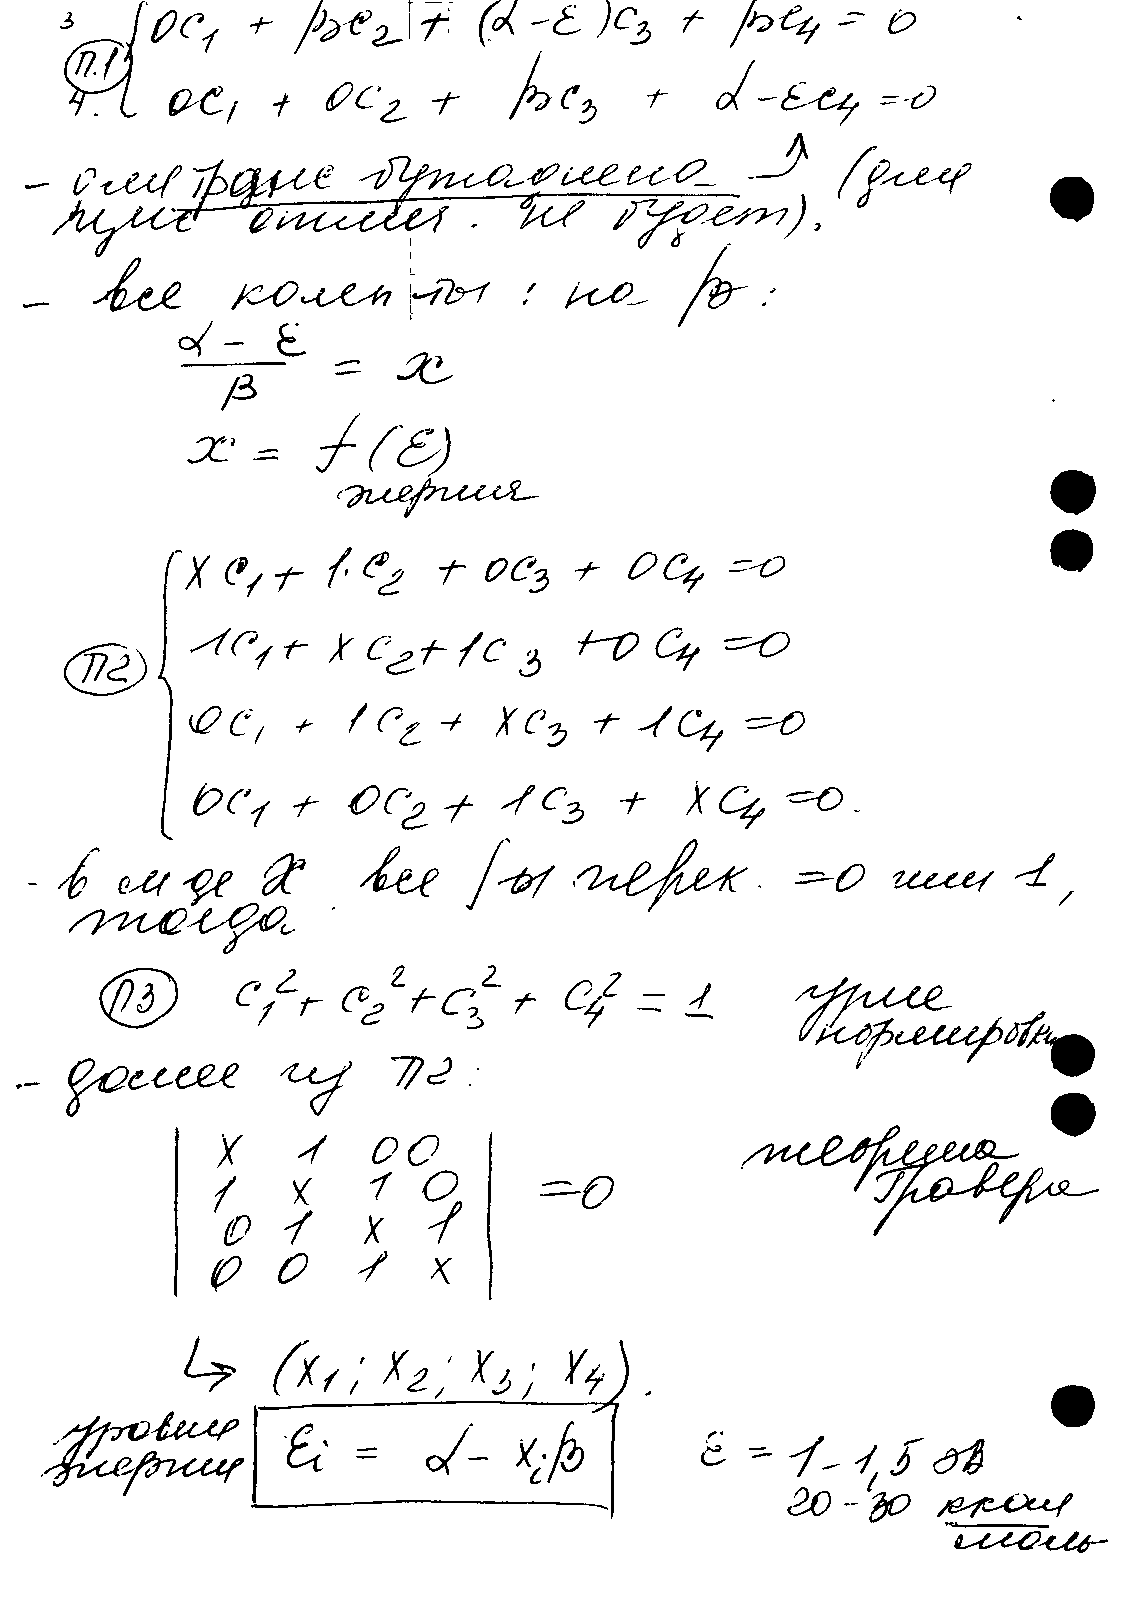 3 { 0C₁ + βC₂ + (α-ε)C₃ + βC₄ = 0
П.1
4. 0C₁ + 0C₂ + βC₃ + α-εC₄ = 0
- для транс бутадиена (для
цис отлич. не будет).
- все колеп-ты : на β :
(α - ε)/β = x
x = f(ε)
энергия
xC₁ + 1·C₂ + 0C₃ + 0C₄ = 0
П2 1C₁ + xC₂ + 1C₃ + 0C₄ = 0
0C₁ + 1C₂ + xC₃ + 1C₄ = 0
0C₁ + 0C₂ + 1C₃ + xC₄ = 0.
- в м-де X все ∫ы перек. = 0 или 1,
тогда
П3 C₁² + C₂² + C₃² + C₄² = 1 ур-ие
нормировки
- далее из П2 :
x 1 0 0
1 x 1 0 = 0 теорема
0 1 x 1 Кра­мера
0 0 1 x
↳ (x₁; x₂; x₃; x₄).
уровни
энергии εi = α - xiβ ε = 1-1,5 эВ
20-30 ккал
моль